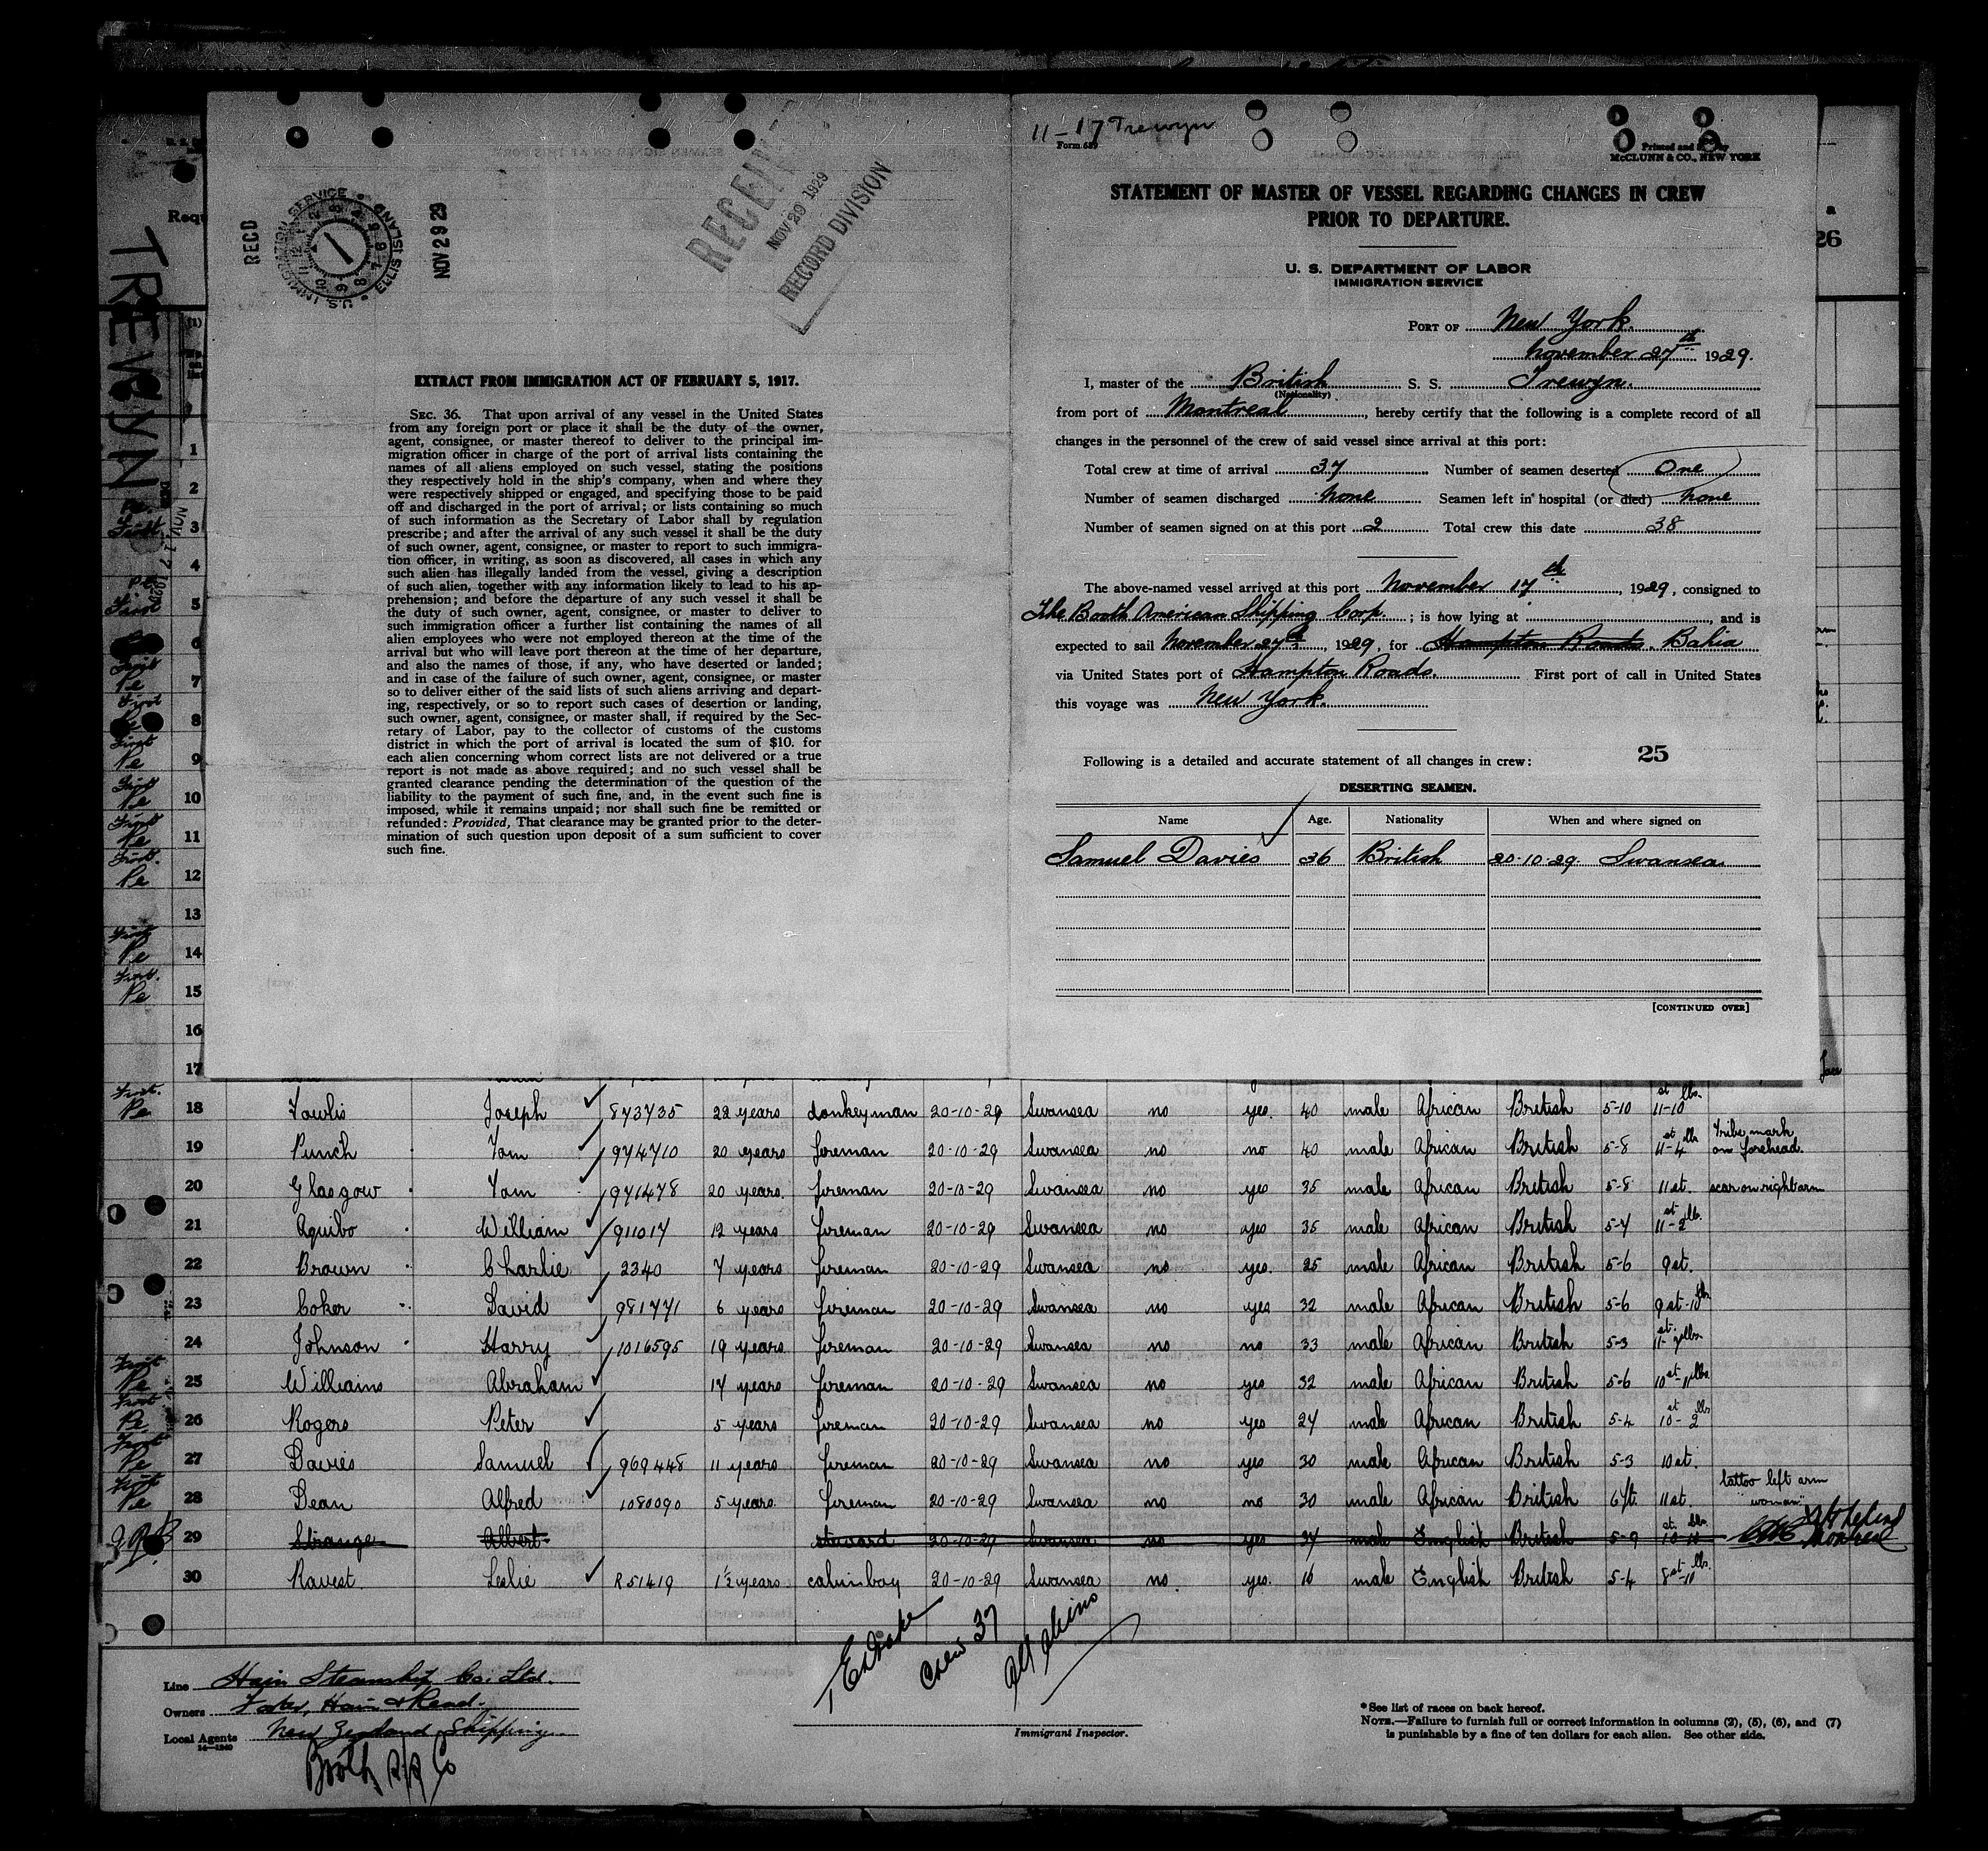 TREWYN
RECD
U.S. IMMIGRATION SERVICE • ELLIS ISLAND
NOV 29 29
NOV 29 1929
RECORD DIVISION
EXTRACT FROM IMMIGRATION ACT OF FEBRUARY 5, 1917.
SEC. 36. That upon arrival of any vessel in the United States
from any foreign port or place it shall be the duty of the owner,
agent, consignee, or master thereof to deliver to the principal im-
migration officer in charge of the port of arrival lists containing the
names of all aliens employed on such vessel, stating the positions
they respectively hold in the ship's company, when and where they
were respectively shipped or engaged, and specifying those to be paid
off and discharged in the port of arrival; or lists containing so much
of such information as the Secretary of Labor shall by regulation
prescribe; and after the arrival of any such vessel it shall be the duty
of such owner, agent, consignee, or master to report to such immigra-
tion officer, in writing, as soon as discovered, all cases in which any
such alien has illegally landed from the vessel, giving a description
of such alien, together with any information likely to lead to his ap-
prehension; and before the departure of any such vessel it shall be
the duty of such owner, agent, consignee, or master to deliver to
such immigration officer a further list containing the names of all
alien employees who were not employed thereon at the time of the
arrival but who will leave port thereon at the time of her departure,
and also the names of those, if any, who have deserted or landed;
and in case of the failure of such owner, agent, consignee, or master
so to deliver either of the said lists of such aliens arriving and depart-
ing, respectively, or so to report such cases of desertion or landing,
such owner, agent, consignee, or master shall, if required by the Sec-
retary of Labor, pay to the collector of customs of the customs
district in which the port of arrival is located the sum of $10. for
each alien concerning whom correct lists are not delivered or a true
report is not made as above required; and no such vessel shall be
granted clearance pending the determination of the question of the
liability to the payment of such fine, and, in the event such fine is
imposed, while it remains unpaid; nor shall such fine be remitted or
refunded: Provided, That clearance may be granted prior to the deter-
mination of such question upon deposit of a sum sufficient to cover
such fine.
11-17 Trewyn
Form 689
Printed and
McCLUNN & CO., NEW YORK
STATEMENT OF MASTER OF VESSEL REGARDING CHANGES IN CREW
PRIOR TO DEPARTURE.
U. S. DEPARTMENT OF LABOR
IMMIGRATION SERVICE
PORT OF New York.
November 27th 1929.
I, master of the British S. S. Trewyn.
(Nationality)
from port of Montreal, hereby certify that the following is a complete record of all
changes in the personnel of the crew of said vessel since arrival at this port:
Total crew at time of arrival 37 Number of seamen deserted One
Number of seamen discharged None Seamen left in hospital (or died) None
Number of seamen signed on at this port 2 Total crew this date 38
The above-named vessel arrived at this port November 17th, 1929, consigned to
The Booth American Shipping Corp.; is now lying at , and is
expected to sail November 27th, 1929, for Hampton Roads. Bahia
via United States port of Hampton Roads. First port of call in United States
this voyage was New York.
25
Following is a detailed and accurate statement of all changes in crew:
DESERTING SEAMEN.
Name Age. Nationality When and where signed on
Samuel Davies 36 British 20-10-29 Swansea
[CONTINUED OVER]
26
1
2
3
4
5
6
7
8
9
10
11
12
13
14
15
16
17
18 Fowlis Joseph 843735 22 years donkeyman 20-10-29 Swansea no yes. 40 male African British 5-10 11st-10lbs.
19 Punch Tom 974710 20 years fireman 20-10-29 Swansea no no 40 male African British 5-8 11st-4lbs Tribe mark on forehead.
20 Glasgow Tom 971478 20 years. fireman 20-10-29 Swansea no yes 35 male African British 5-8 11st. scar on right arm
21 Aquibo William 911017 12 years fireman 20-10-29 Swansea no yes 35 male African British 5-7 11st-2lb.
22 Brown Charlie 2340 7 years fireman 20-10-29 Swansea no yes. 25 male African British 5-6 9st.
23 Coker David 981771 6 years fireman 20-10-29 Swansea no yes 32 male African British 5-6 9st-10lbs
24 Johnson Harry 1016595 19 years fireman 20-10-29 Swansea no no 33 male African British 5-3 11st-7lbs.
25 Williams Abraham 17 years fireman 20-10-29 Swansea no yes 32 male African British 5-6 10st-11lbs
26 Rogers Peter 5 years fireman 20-10-29 Swansea no yes 24 male African British 5-4 10st-2lbs
27 Davies Samuel 969448 11 years fireman 20-10-29 Swansea no yes 30 male African British 5-3 10st.
28 Dean Alfred 1080090 5 years. fireman 20-10-29 Swansea no no 30 male African British 6ft. 11st. tattoo left arm "woman"
29 Strange Albert steward 20-10-29 Swansea no yes 37 male English British 5-9 10st-10lbs. Montreal
30 Ravest. Leslie R51419 1½ years cabin boy 20-10-29 Swansea no. yes. 16 male English British 5-4 8st-10lbs.
Crew 37
Line Hain Steamship Co. Ltd.
Owners Foster, Hain & Read.
Local Agents New Zealand Shipping
14—1240
Booth S/S Co
Immigrant Inspector.
* See list of races on back hereof.
NOTE.—Failure to furnish full or correct information in columns (2), (5), (6), and (7)
is punishable by a fine of ten dollars for each alien. See other side.